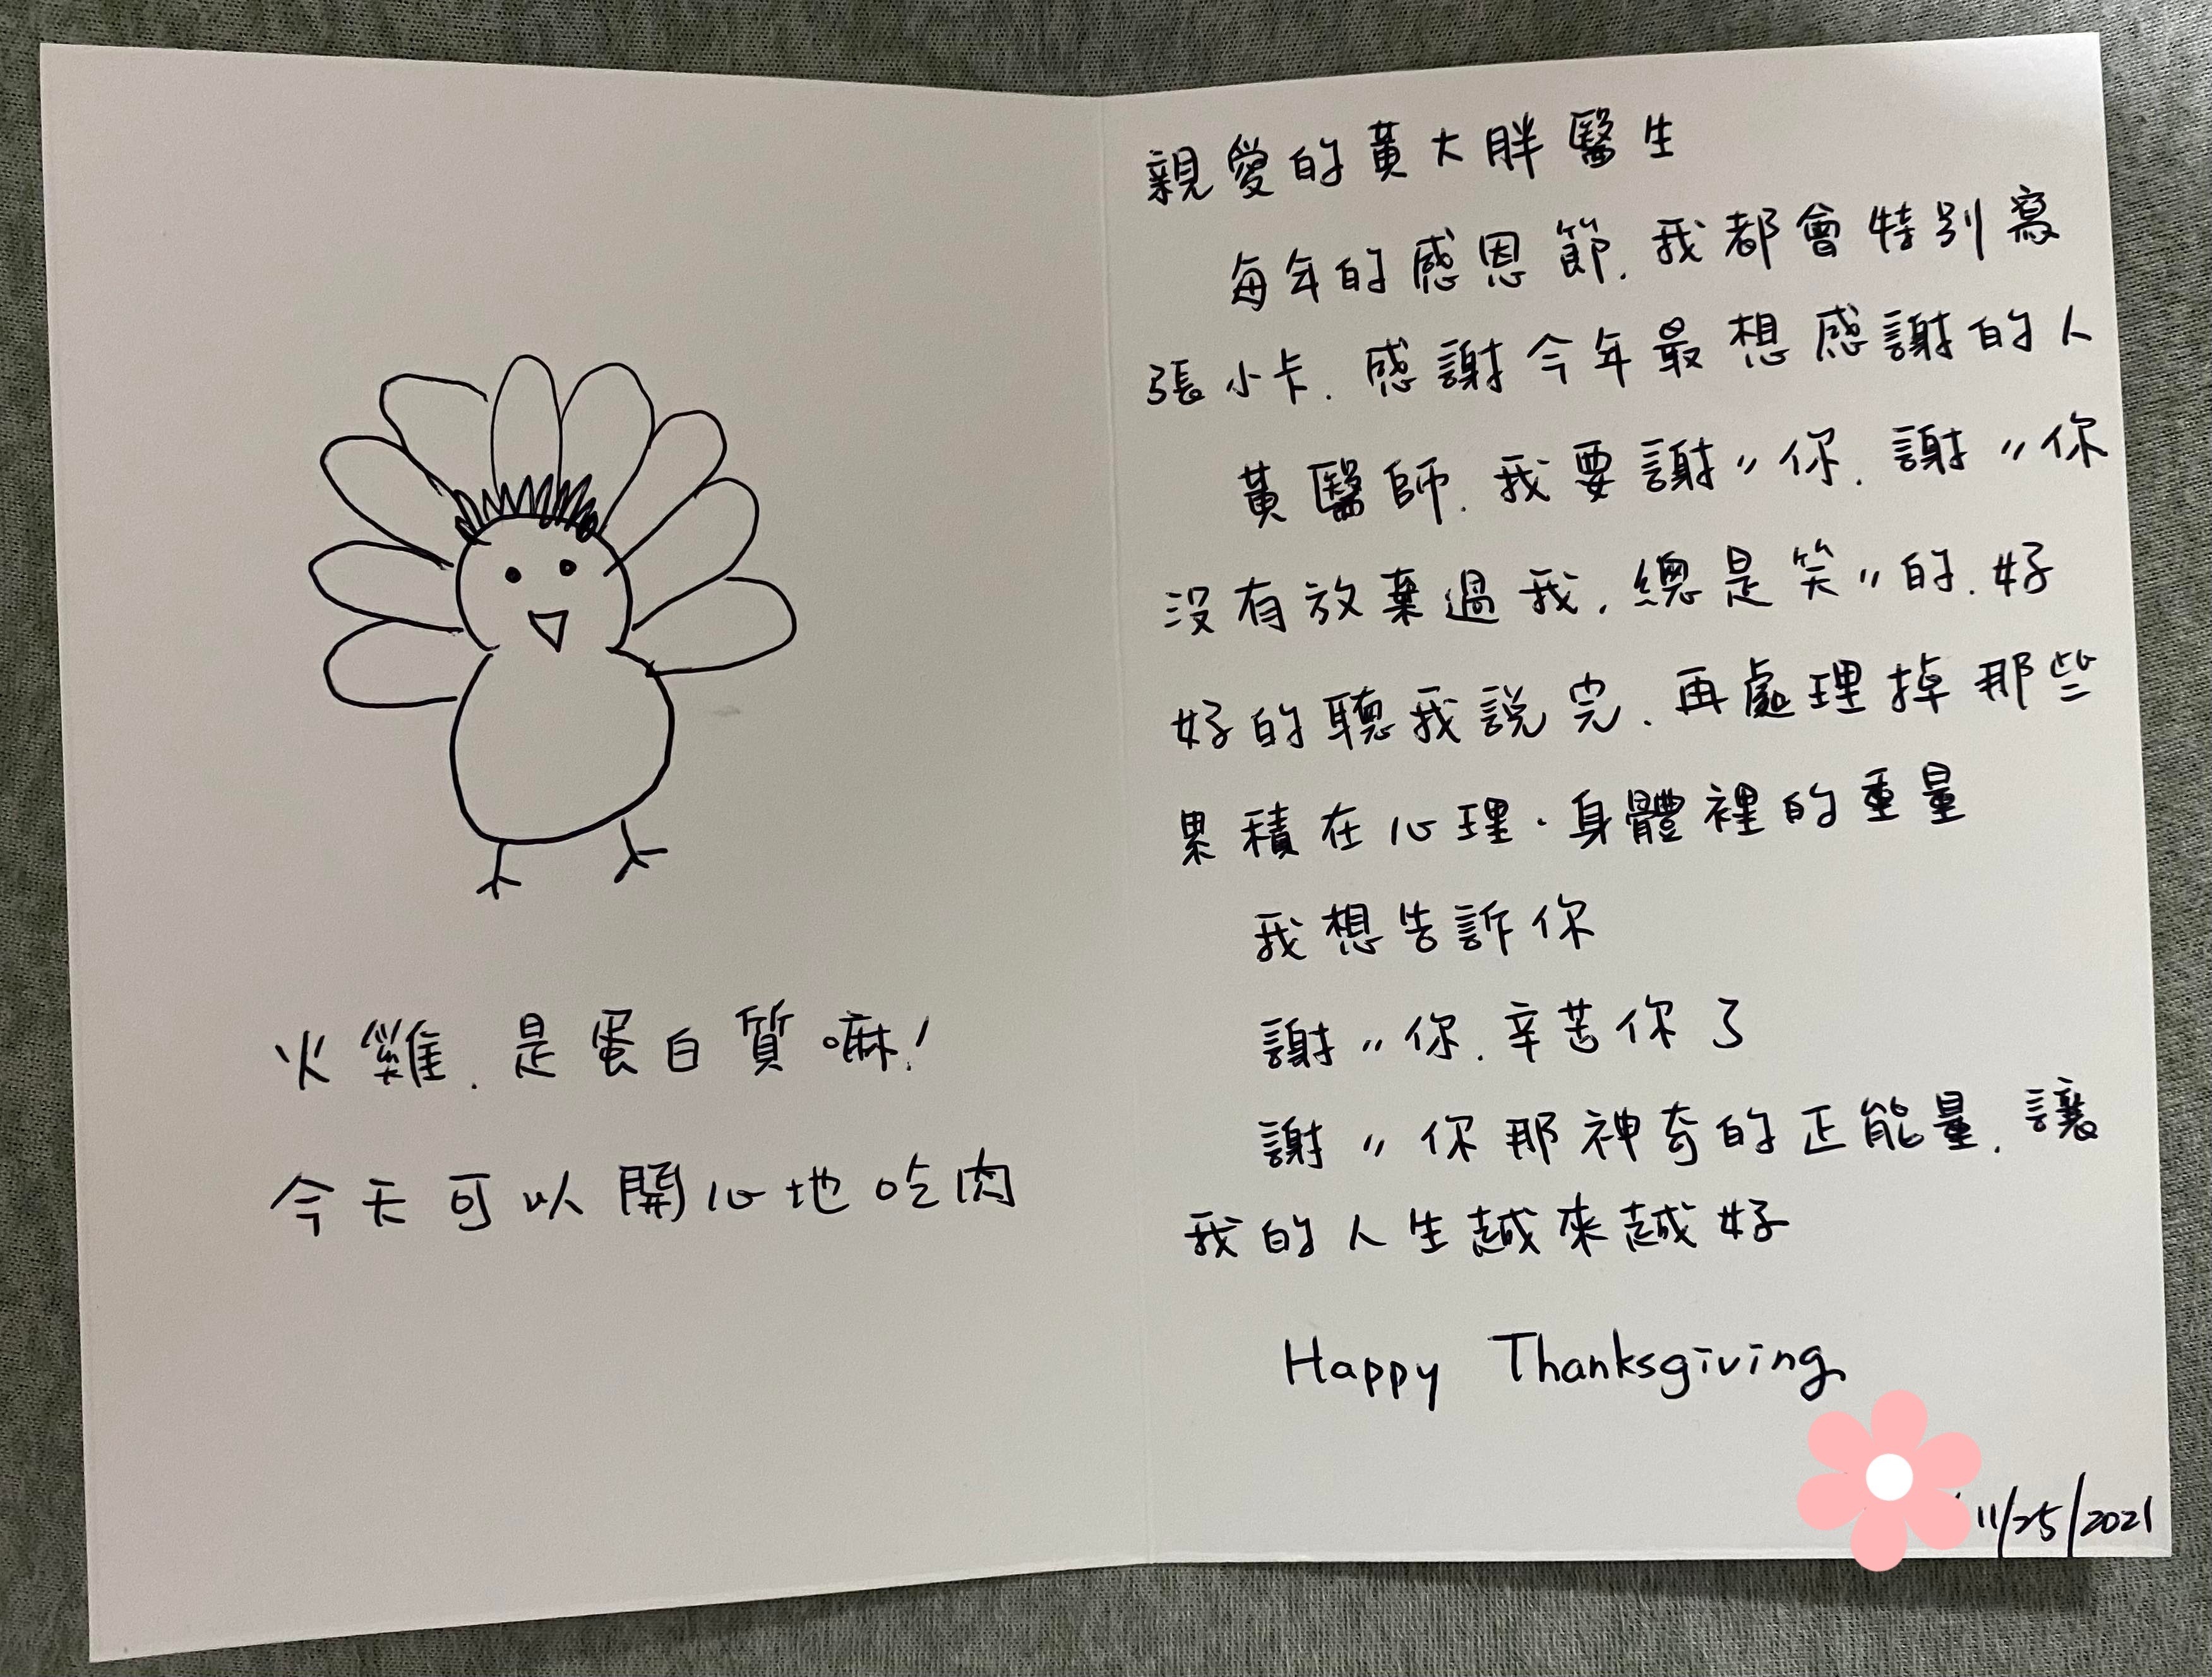 火雞.是蛋白質嘛!
今天可以開心地吃肉
親愛的黃大胖醫生
每年的感恩節.我都會特別寫
張小卡.感謝今年最想感謝的人
黃醫師.我要謝〃你.謝〃你
沒有放棄過我.總是笑〃的.好
好的聽我說完.再處理掉那些
累積在心理·身體裡的重量
我想告訴你
謝〃你.辛苦你了
謝〃你那神奇的正能量.讓
我的人生越來越好
Happy Thanksgiving
11/25/2021